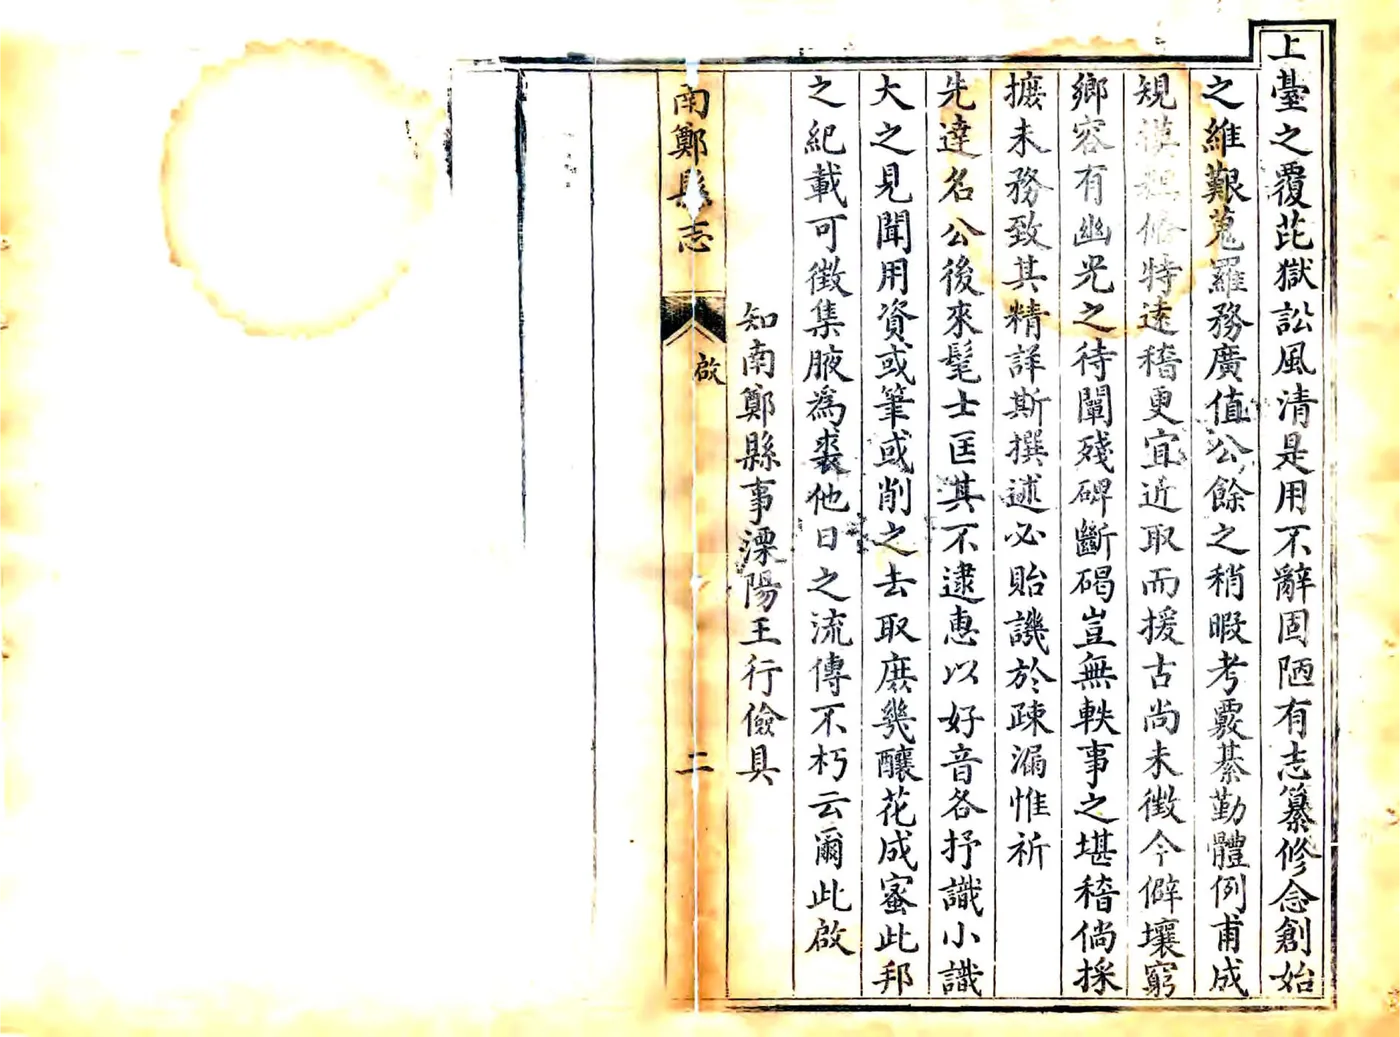 上臺之覆芘獄訟風清是用不辭固陋有志纂修念創始
之維艱蒐羅務廣值公餘之稍暇考覈綦勤體例甫成
規模粗備特遠稽更宜近取而援古尚未徵今僻壤窮
鄉容有幽光之待闡殘碑斷碣豈無軼事之堪稽倘採
摭未務致其精詳斯撰述必貽譏於疎漏惟祈
先達名公後來髦士匡其不逮惠以好音各抒識小識
大之見聞用資或筆或削之去取庶幾釀花成蜜此邦
之紀載可徵集腋為裘他日之流傳不朽云爾此啟
知南鄭縣事溧陽王行儉具
南鄭縣志
啟
二